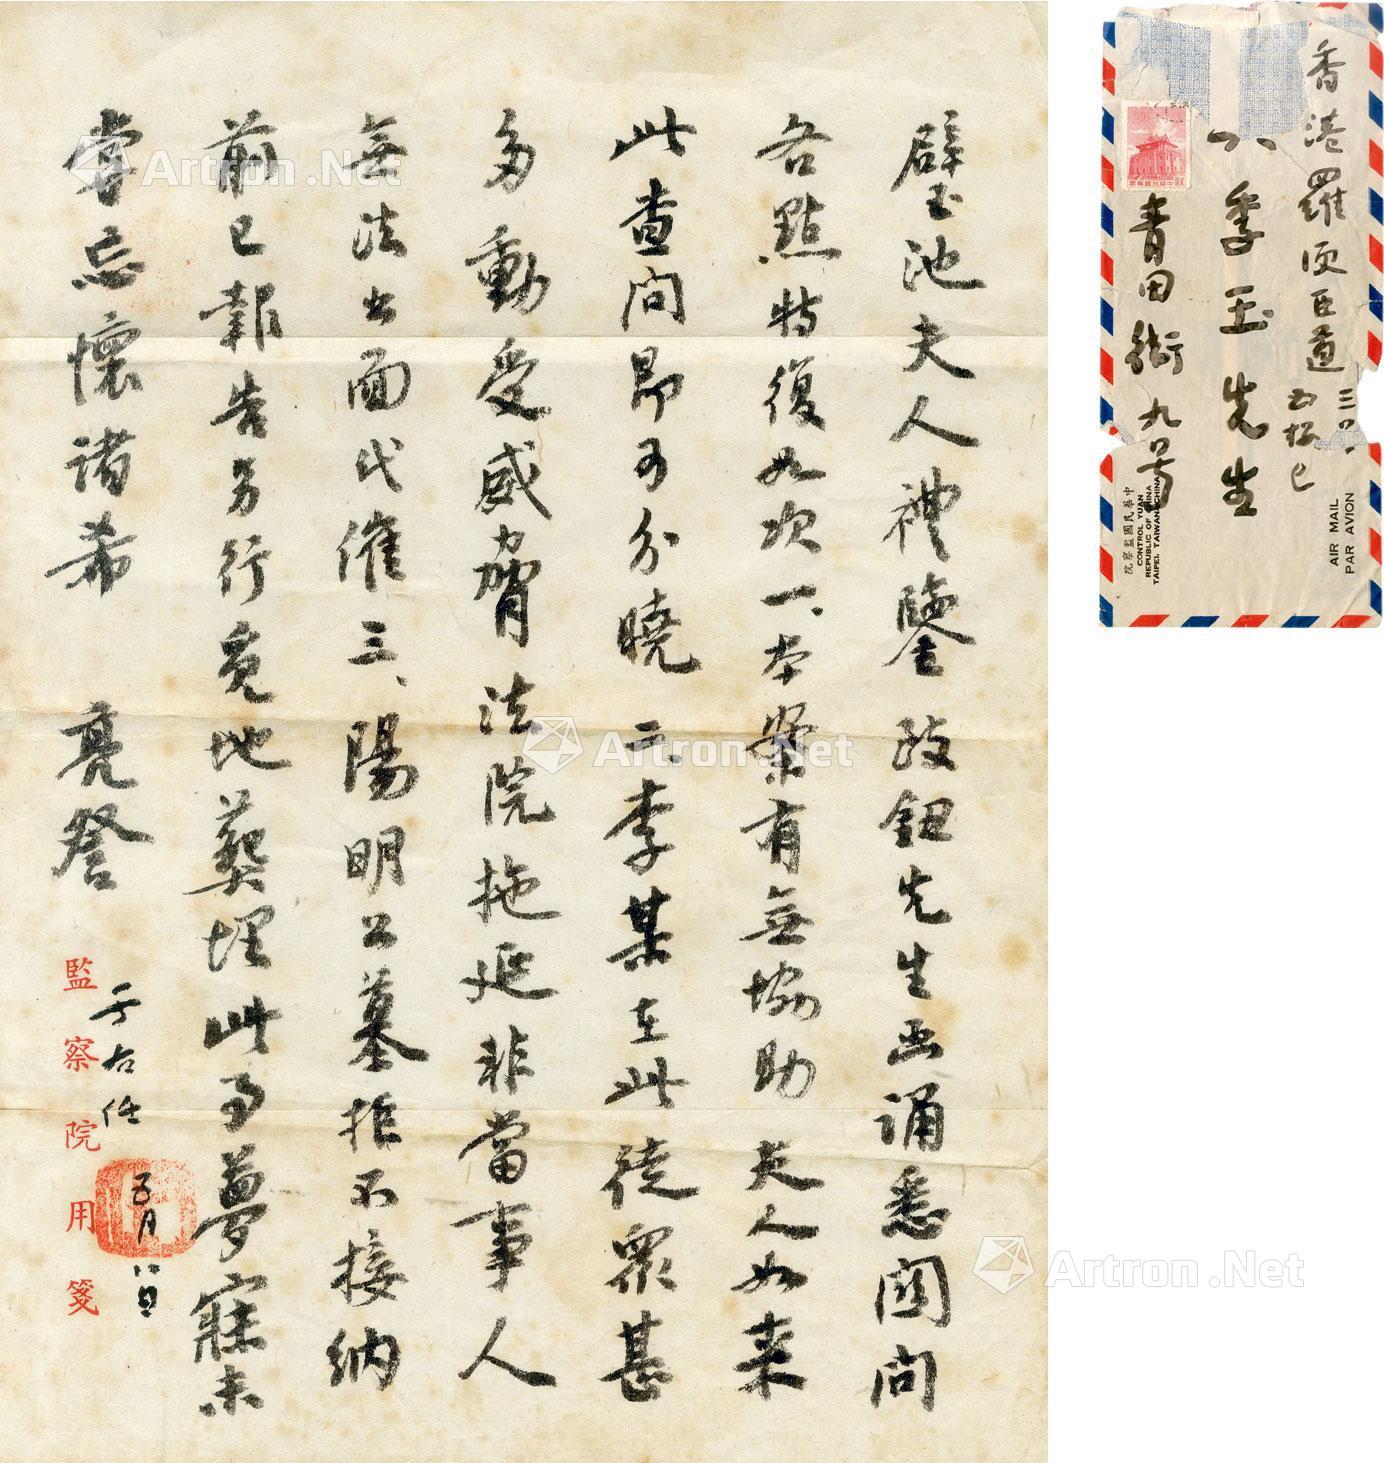 璧池夫人禮鑒致鈕先生函誦悉關問
各點特復如次一、本案有無協助夫人如来
此查問即可分曉二、李某在此徒衆甚
多動受威脅法院拖延非當事人
無法出面代催三、陽明公墓拒不接納
前已報告另行覓地葬埋此事夢寐未
嘗忘懷諸希 亮詧
于右任
五月八日
監察院用箋
香港羅便臣道
季玉先生
青田街九号
中華民國監察院
CONTROL YUAN
REPUBLIC OF CHINA
TAIPEI, TAIWAN, CHINA
AIR MAIL
PAR AVION
中華民國郵票
Artron.Net
Artron.Net
Artron.Net
Artron.Net
Artron.Net